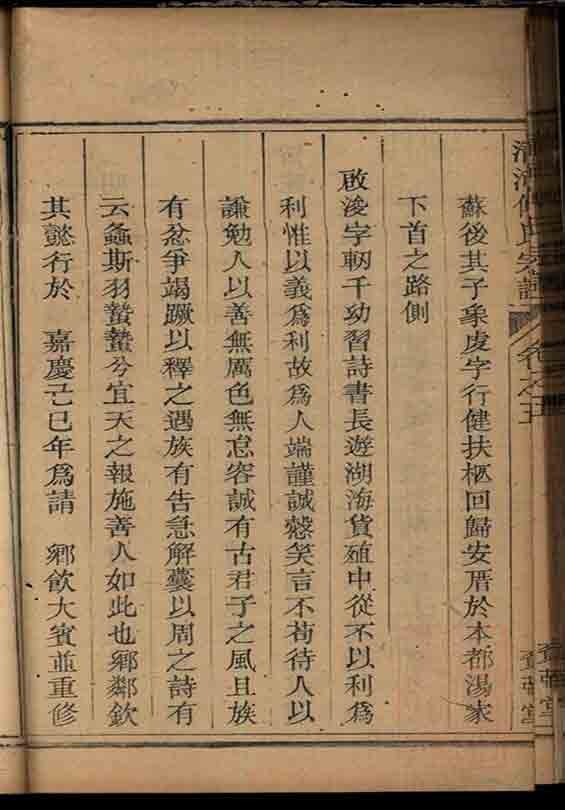 氏宗譜
卷之五
蘇後其子秉虔字行健扶柩回歸安厝於本都湯家
下首之路側
啟浚字軔千幼習詩書長遊湖海貨殖中從不以利爲
利惟以義爲利故爲人端謹誠慤笑言不苟待人以
謙勉人以善無厲色無怠容誠有古君子之風且族
有忿爭竭蹶以釋之遇族有告急解囊以周之詩有
云螽斯羽蟄蟄兮宜天之報施善人如此也鄉鄰欽
其懿行於 嘉慶己巳年爲請 鄉飲大賓並重修